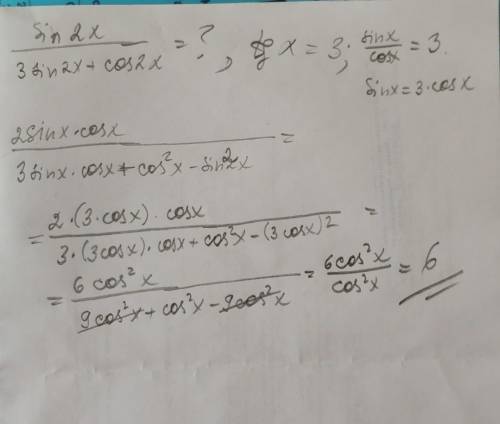 sin 2x / (3 sin2x + cos2x) = ? , tg x = 3; sinx/cosx = 3.
sinx = 3·cosx
2sinx·cosx / (3sinx·cosx + cos²x - sin²x) =
= 2·(3·cosx)·cosx / (3·(3cosx)·cosx + cos²x - (3cosx)²) =
= 6cos²x / (9cos²x + cos²x - 9cos²x) = 6cos²x / cos²x = 6